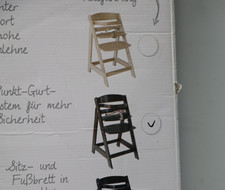 nter
ort
ohe
nlehne
Punkt-Gurt-
stem für mehr
icherheit
Sitz- und
Fußbrett in